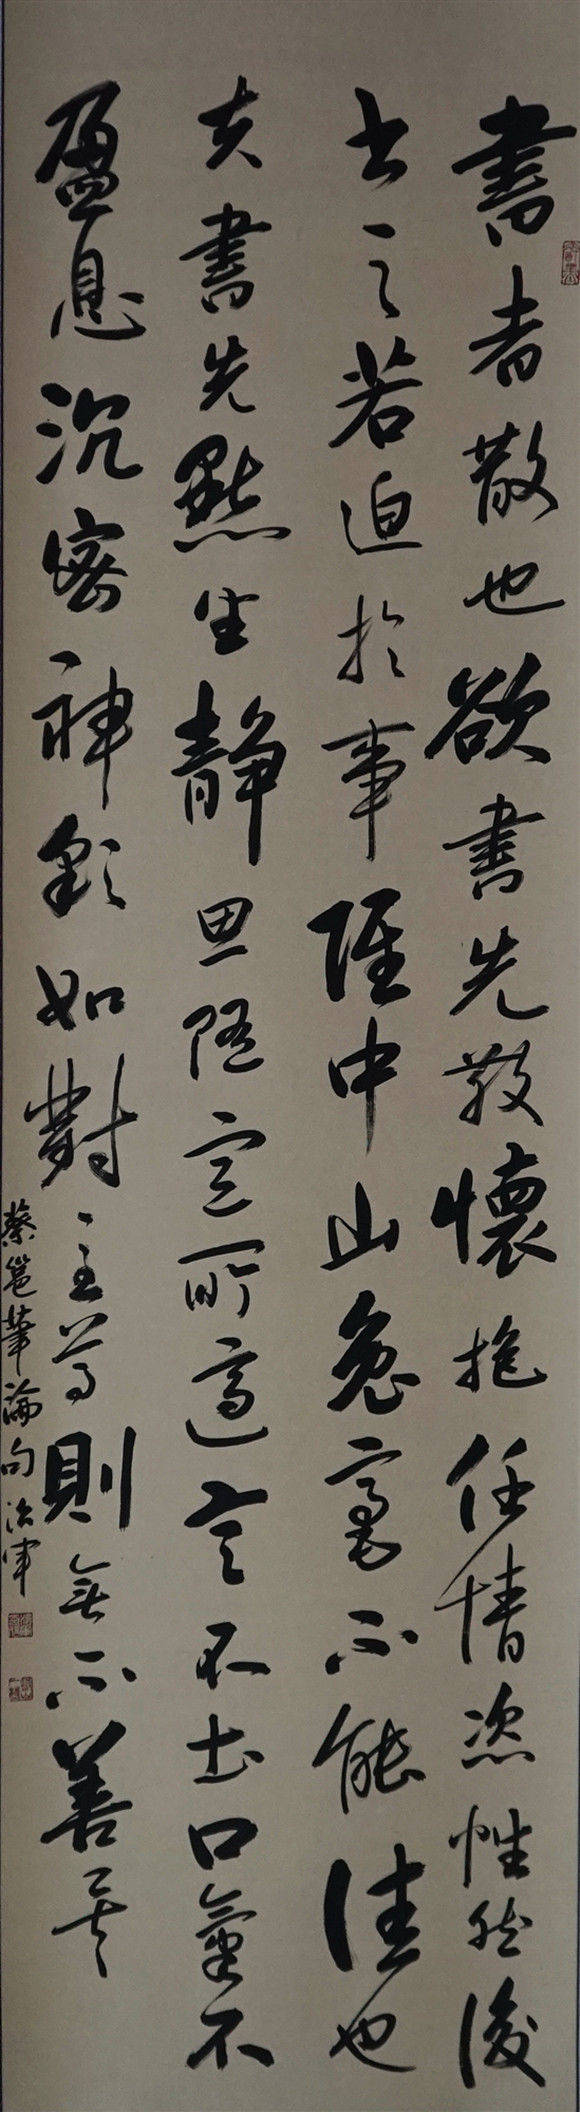 書者散也欲書先散懷抱任情恣性然後
書之若迫於事雖中山兔毫不能佳也
夫書先默坐靜思隨意所適言不出口氣不
盈息沉密神彩如對至尊則無不善矣
蔡邕筆論句 治軍